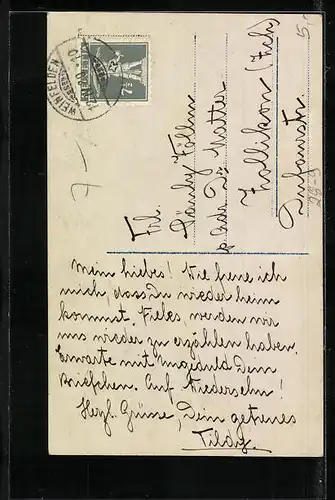 WEINFELDEN
7½
5.-
7 –
Frl.
Fällen
p. Adr. Dr. Matter
Zollikon (Zrch)
Dufourstr.
Mein liebes! Wie freue ich
mich, dass Du wieder heim
kommst. Vieles, werden wir
uns wieder zu erzählen haben.
Erwarte mit Ungeduld Dein
Briefchen. Auf Wiedersehn!
Herzl. Grüsse, Dein getreues
Tildy.